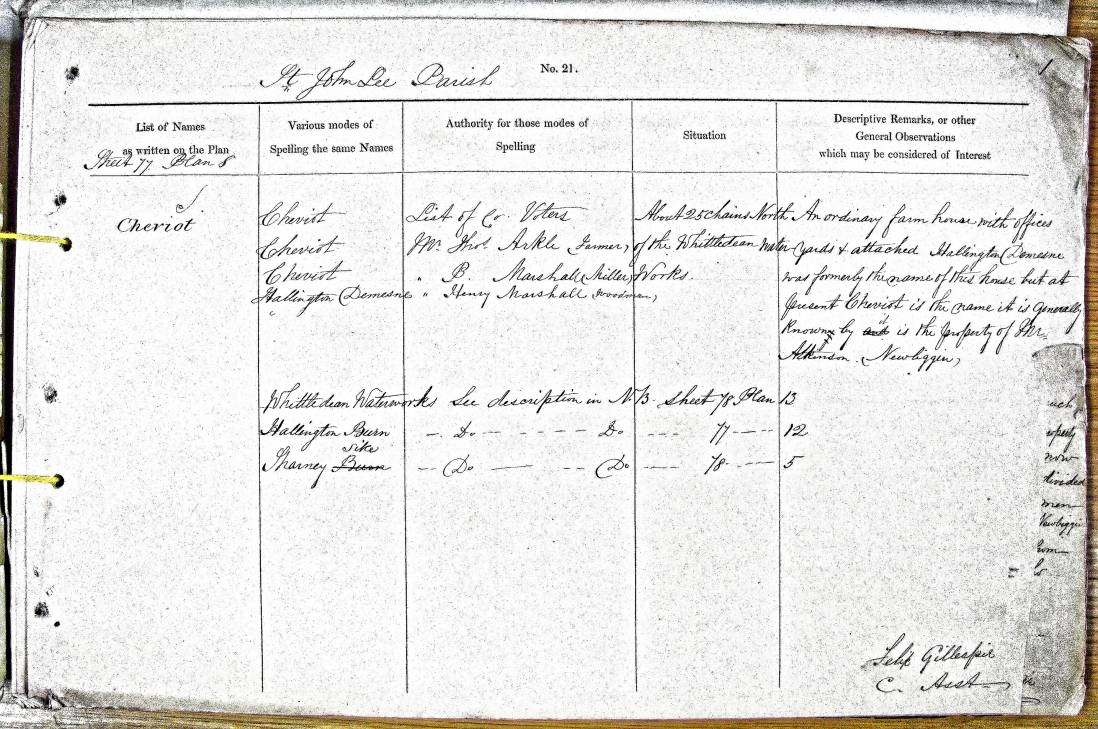 St. John Lee Parish
No. 21.
1
List of Names
as written on the Plan
Sheet 77 Plan 8
Various modes of
Spelling the same Names
Authority for those modes of
Spelling
Situation
Descriptive Remarks, or other
General Observations
which may be considered of Interest
Cheviot
Cheviot
Cheviot
Cheviot
Hallington Demesne
List of Co. Voters
Mr. Thos. Arkle Farmer,
" B. Marshall (Miller)
" Henry Marshall Woodman,
About 25 chains North
of the Whittledean Water
Works.
An ordinary farm house with offices
yards & attached Hallington Demesne
was formerly the name of this house but at
present Cheviot is the name it is generally
known by and it is the property of Mr.
Atkinson. Newbiggin,
Whittledean Waterworks See description in N.B. Sheet 78 Plan 13
Hallington Burn -- Do ---- Do --- 77 --- 12
Sike
Sharney Burn -- Do -- -- Do -- 78 --- 5
each
operty
now
divided
men
Newbiggi
Felix Gillespie
C. Asst